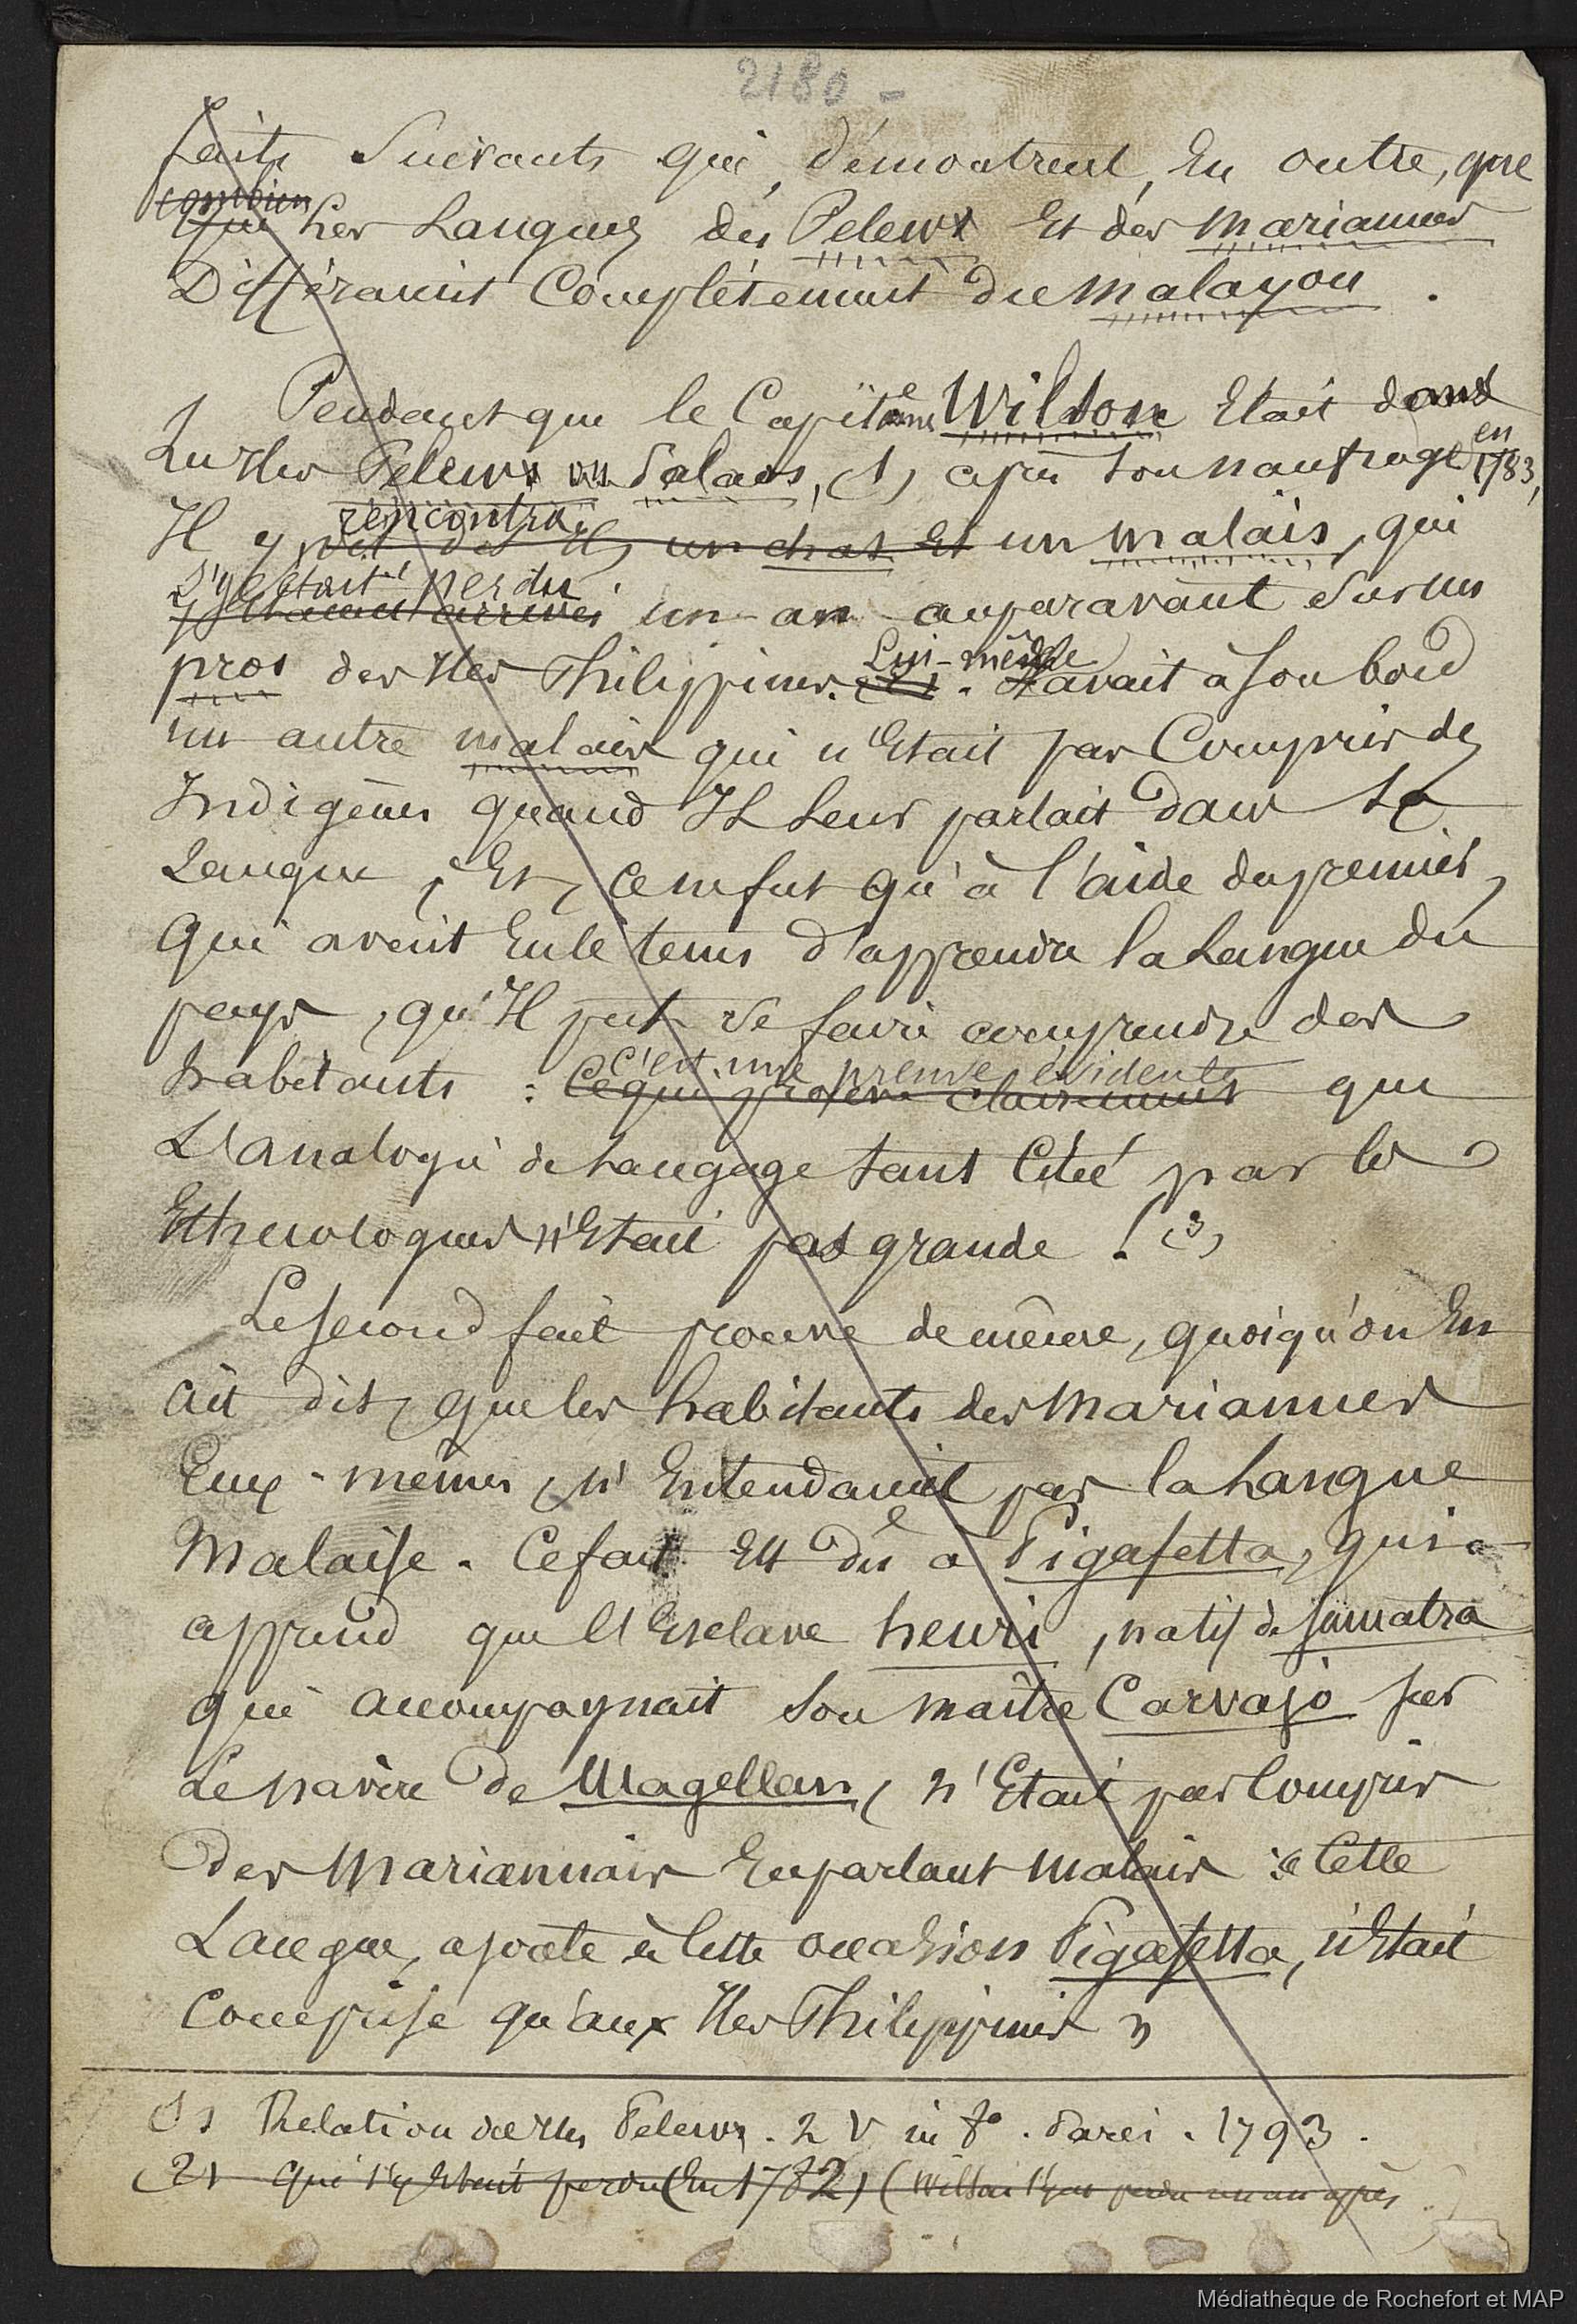 2180 -
faits suivants qui, démontrent, En outre, que
combien
que les Langues des Pelew et des Mariannes
Différaient Complétement du malayou .
Pendant que le Capitaine Wilson Etait dans
Les Iles Pelew ou Palaos, (1) après son naufrage en 1783,
rencontra
Il y vit un chat Et un malais, qui
s'y était perdu
y était arrivé un an auparavant sur un
pros des Iles Philippines. Lui-même avait à son bord
un autre malais qui n'Etait pas Compris des
Indigènes quand Il Leur parlait dans sa
Langue ; Et, ce ne fut qu'à l'aide du premier,
qui avait Eu le tems d'apprendre la Langue du
pays, qu'Il put se faire comprendre des
c'est une preuve évidente
habitants : Ce qui prouve clairement que
L'analogie de Langage tant Citée par les
Ethnologues n'Etait pas grande ! (3)
Le second fait prouve de même, quoiqu'on En
ait dit, que les habitants des Mariannes
Eux-mêmes, n'Entendaient pas la Langue
Malaise. Ce fait Est dû à Pigafetta, qui a
appris que l'Esclave henri, natif de Sumatra
qui accompagnait son maître Carvajo sur
Le navire de Magellan, n'Etait pas Compris
des Mariannais En parlant malais : « Cette
Langue, ajoute à cette occasion Pigafetta, n'Etait
Comprise qu'aux Iles Philippines »
(1) Relation des Iles Pelew. 2 V in 8°. Paris. 1793.
(2) qui s'y Etait perdu (En 1782) (Wilson s'y est perdu un an après)
Médiathèque de Rochefort et MAP